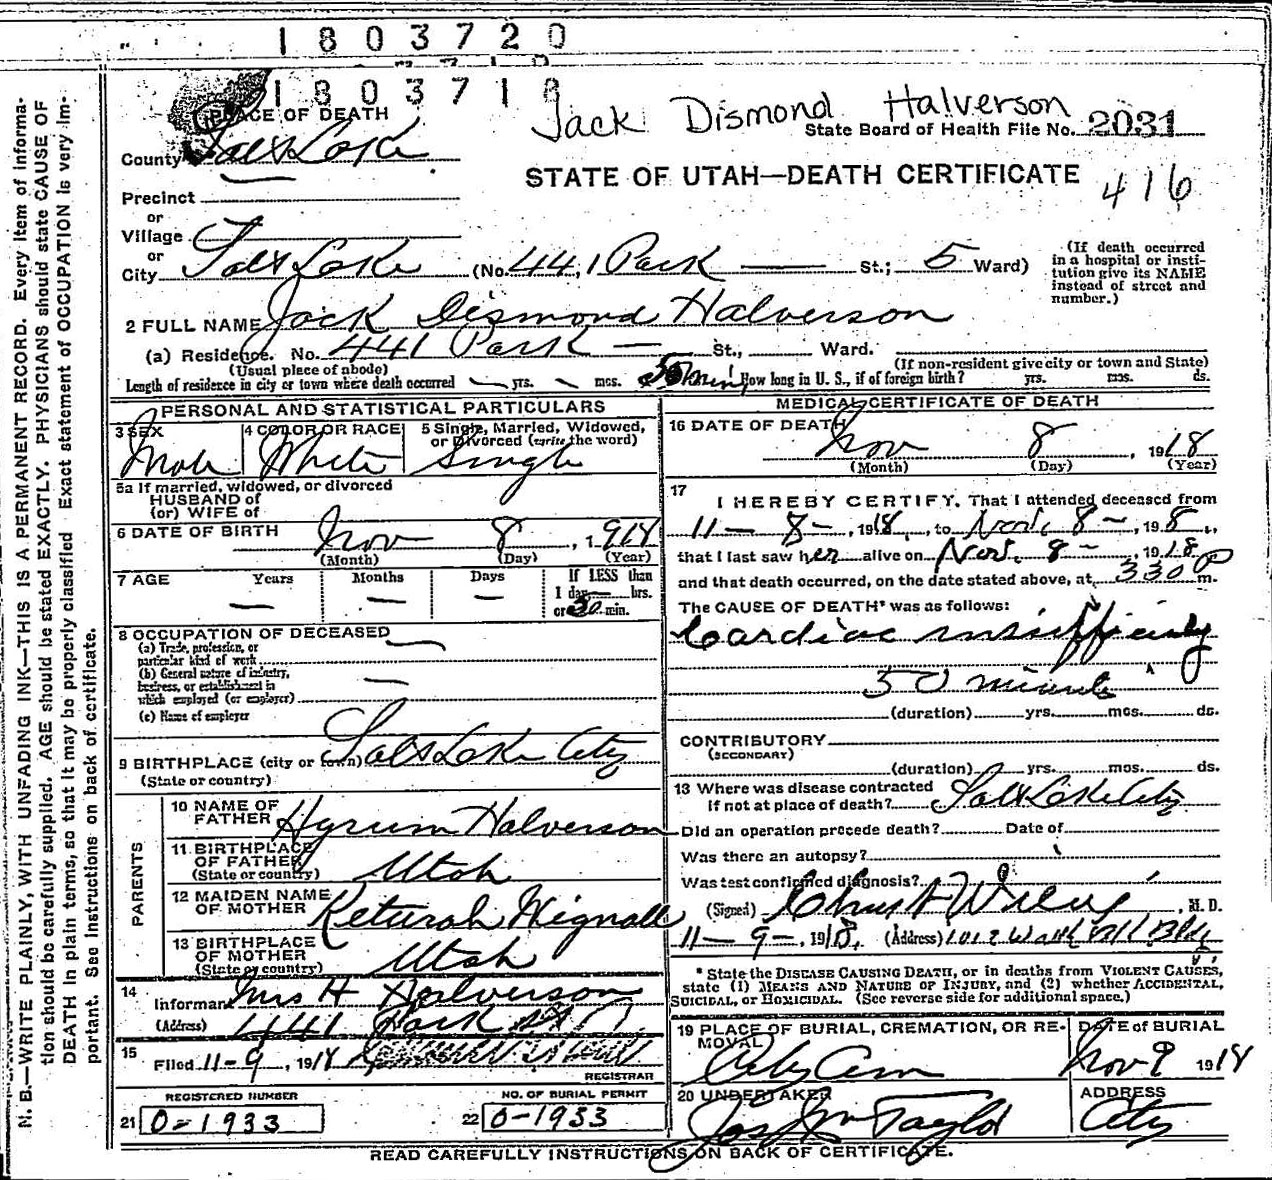 1803720
1803718
Jack Dismond Halverson
PLACE OF DEATH
State Board of Health File No. 2031
County Salt Lake
STATE OF UTAH—DEATH CERTIFICATE
416
Precinct
or
Village
or
City Salt Lake (No. 441 Park St.; 5 Ward)
(If death occurred in a hospital or institution give its NAME instead of street and number.)
2 FULL NAME Jack Dismond Halverson
(a) Residence. No. 441 Park — St., Ward.
(Usual place of abode) (If non-resident give city or town and State)
Length of residence in city or town where death occurred — yrs. — mos. min. How long in U. S., if of foreign birth? yrs. mos. ds.
PERSONAL AND STATISTICAL PARTICULARS
3 SEX 4 COLOR OR RACE 5 Single, Married, Widowed, or Divorced (write the word)
Male White Single
5a If married, widowed, or divorced
HUSBAND of
(or) WIFE of
6 DATE OF BIRTH Nov 8, 1918
(Month) (Day) (Year)
7 AGE Years Months Days If LESS than
— — — 1 day — hrs.
or 30 min.
8 OCCUPATION OF DECEASED —
(a) Trade, profession, or
particular kind of work
(b) General nature of industry,
business, or establishment in —
which employed (or employer)
(c) Name of employer
9 BIRTHPLACE (city or town) Salt Lake City
(State or country)
PARENTS
10 NAME OF
FATHER Hyrum Halverson
11 BIRTHPLACE
OF FATHER Utah
(State or country)
12 MAIDEN NAME
OF MOTHER Keturah Wignall
13 BIRTHPLACE
OF MOTHER Utah
(State or country)
14 Informant Mrs H Halverson
(Address) 441 Park St
15 Filed 11-9, 1918
REGISTRAR
REGISTERED NUMBER NO. OF BURIAL PERMIT
21 0-1933 22 0-1933
MEDICAL CERTIFICATE OF DEATH
16 DATE OF DEATH Nov 8, 1918
(Month) (Day) (Year)
17 I HEREBY CERTIFY, That I attended deceased from
11-8-, 1918, to Nov. 8-, 1918,
that I last saw her alive on Nov. 8-, 1918
and that death occurred, on the date stated above, at 330 P m.
The CAUSE OF DEATH* was as follows:
Cardiac insufficiency
30 minute
(duration) yrs. mos. ds.
CONTRIBUTORY
(SECONDARY)
(duration) yrs. mos. ds.
18 Where was disease contracted
if not at place of death? Salt Lake City
Did an operation precede death? Date of
Was there an autopsy?
Was test confirmed diagnosis?
(Signed) , M. D.
11-9-, 1918, (Address) 1012 Bldg
* State the DISEASE CAUSING DEATH, or in deaths from VIOLENT CAUSES,
state (1) MEANS AND NATURE OF INJURY, and (2) whether ACCIDENTAL,
SUICIDAL, or HOMICIDAL. (See reverse side for additional space.)
19 PLACE OF BURIAL, CREMATION, OR REMOVAL DATE of BURIAL
City Cem Nov 9 1918
20 UNDERTAKER ADDRESS
Jos Wm Taylor City
READ CAREFULLY INSTRUCTIONS ON BACK OF CERTIFICATE.
N. B.—WRITE PLAINLY, WITH UNFADING INK—THIS IS A PERMANENT RECORD. Every item of informa-
tion should be carefully supplied. AGE should be stated EXACTLY. PHYSICIANS should state CAUSE OF
DEATH in plain terms, so that it may be properly classified. Exact statement of OCCUPATION is very im-
portant. See instructions on back of certificate.